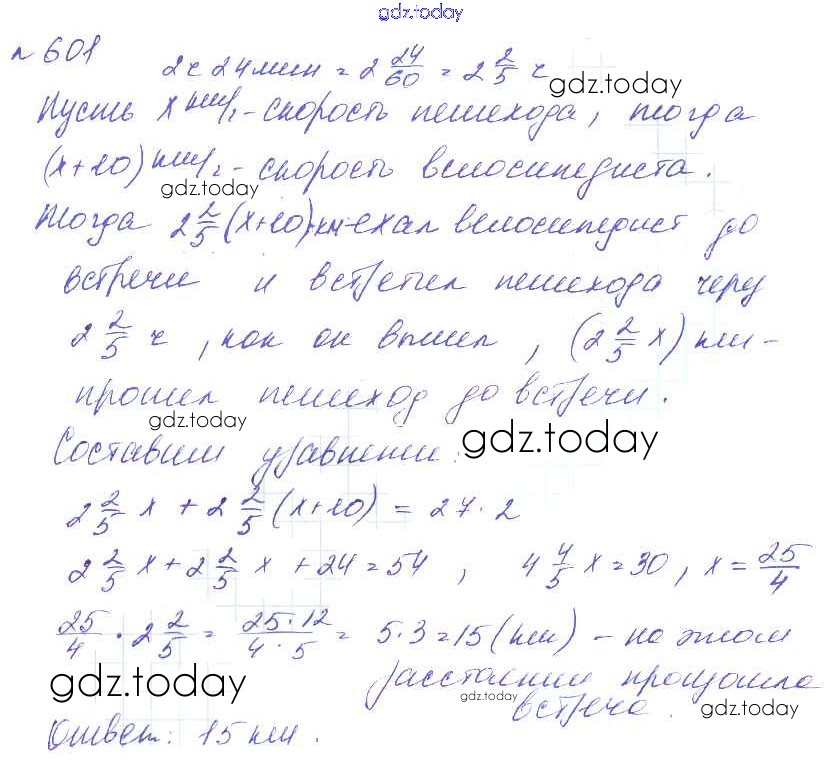 gdz.today
№ 601
2 ч 24 мин = 2 24/60 = 2 2/5 ч
gdz.today
Пусть x км/ч - скорость пешехода, тогда
(x+10) км/ч - скорость велосипедиста.
gdz.today
Тогда 2 2/5 (x+10) км - ехал велосипедист до
встречи и встретил пешехода через
2 2/5 ч, как он вышел, (2 2/5 x) км -
прошел пешеход до встречи.
gdz.today
Составим уравнение:
gdz.today
2 2/5 x + 2 2/5 (x+10) = 27 · 2
2 2/5 x + 2 2/5 x + 24 = 54 , 4 4/5 x = 30 , x = 25/4
25/4 · 2 2/5 = 25·12/4·5 = 5·3 = 15 (км) - на этом
расстоянии произошла
gdz.today
gdz.today
встреча.
gdz.today
Ответ: 15 км.